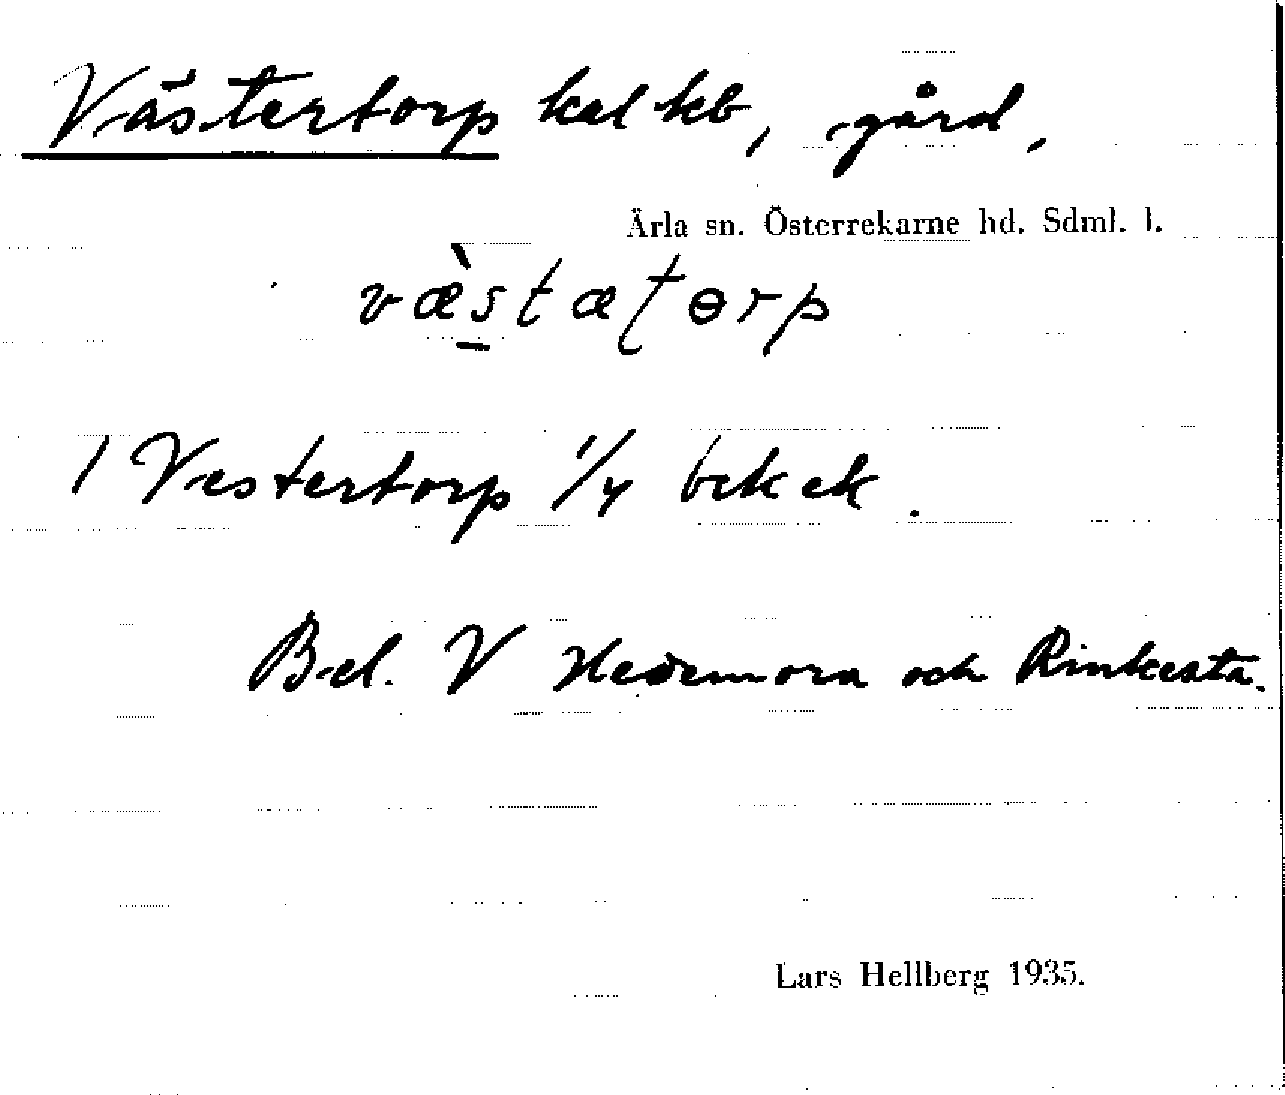 Västertorp kal kb, gård,
Ärla sn. Österrekarne hd. Sdml. l.
væ̀stætɵrp
1 Vestertorp 1/4 bek ek.
Bel. V Hedemora och Rinkesta.
Lars Hellberg 1935.